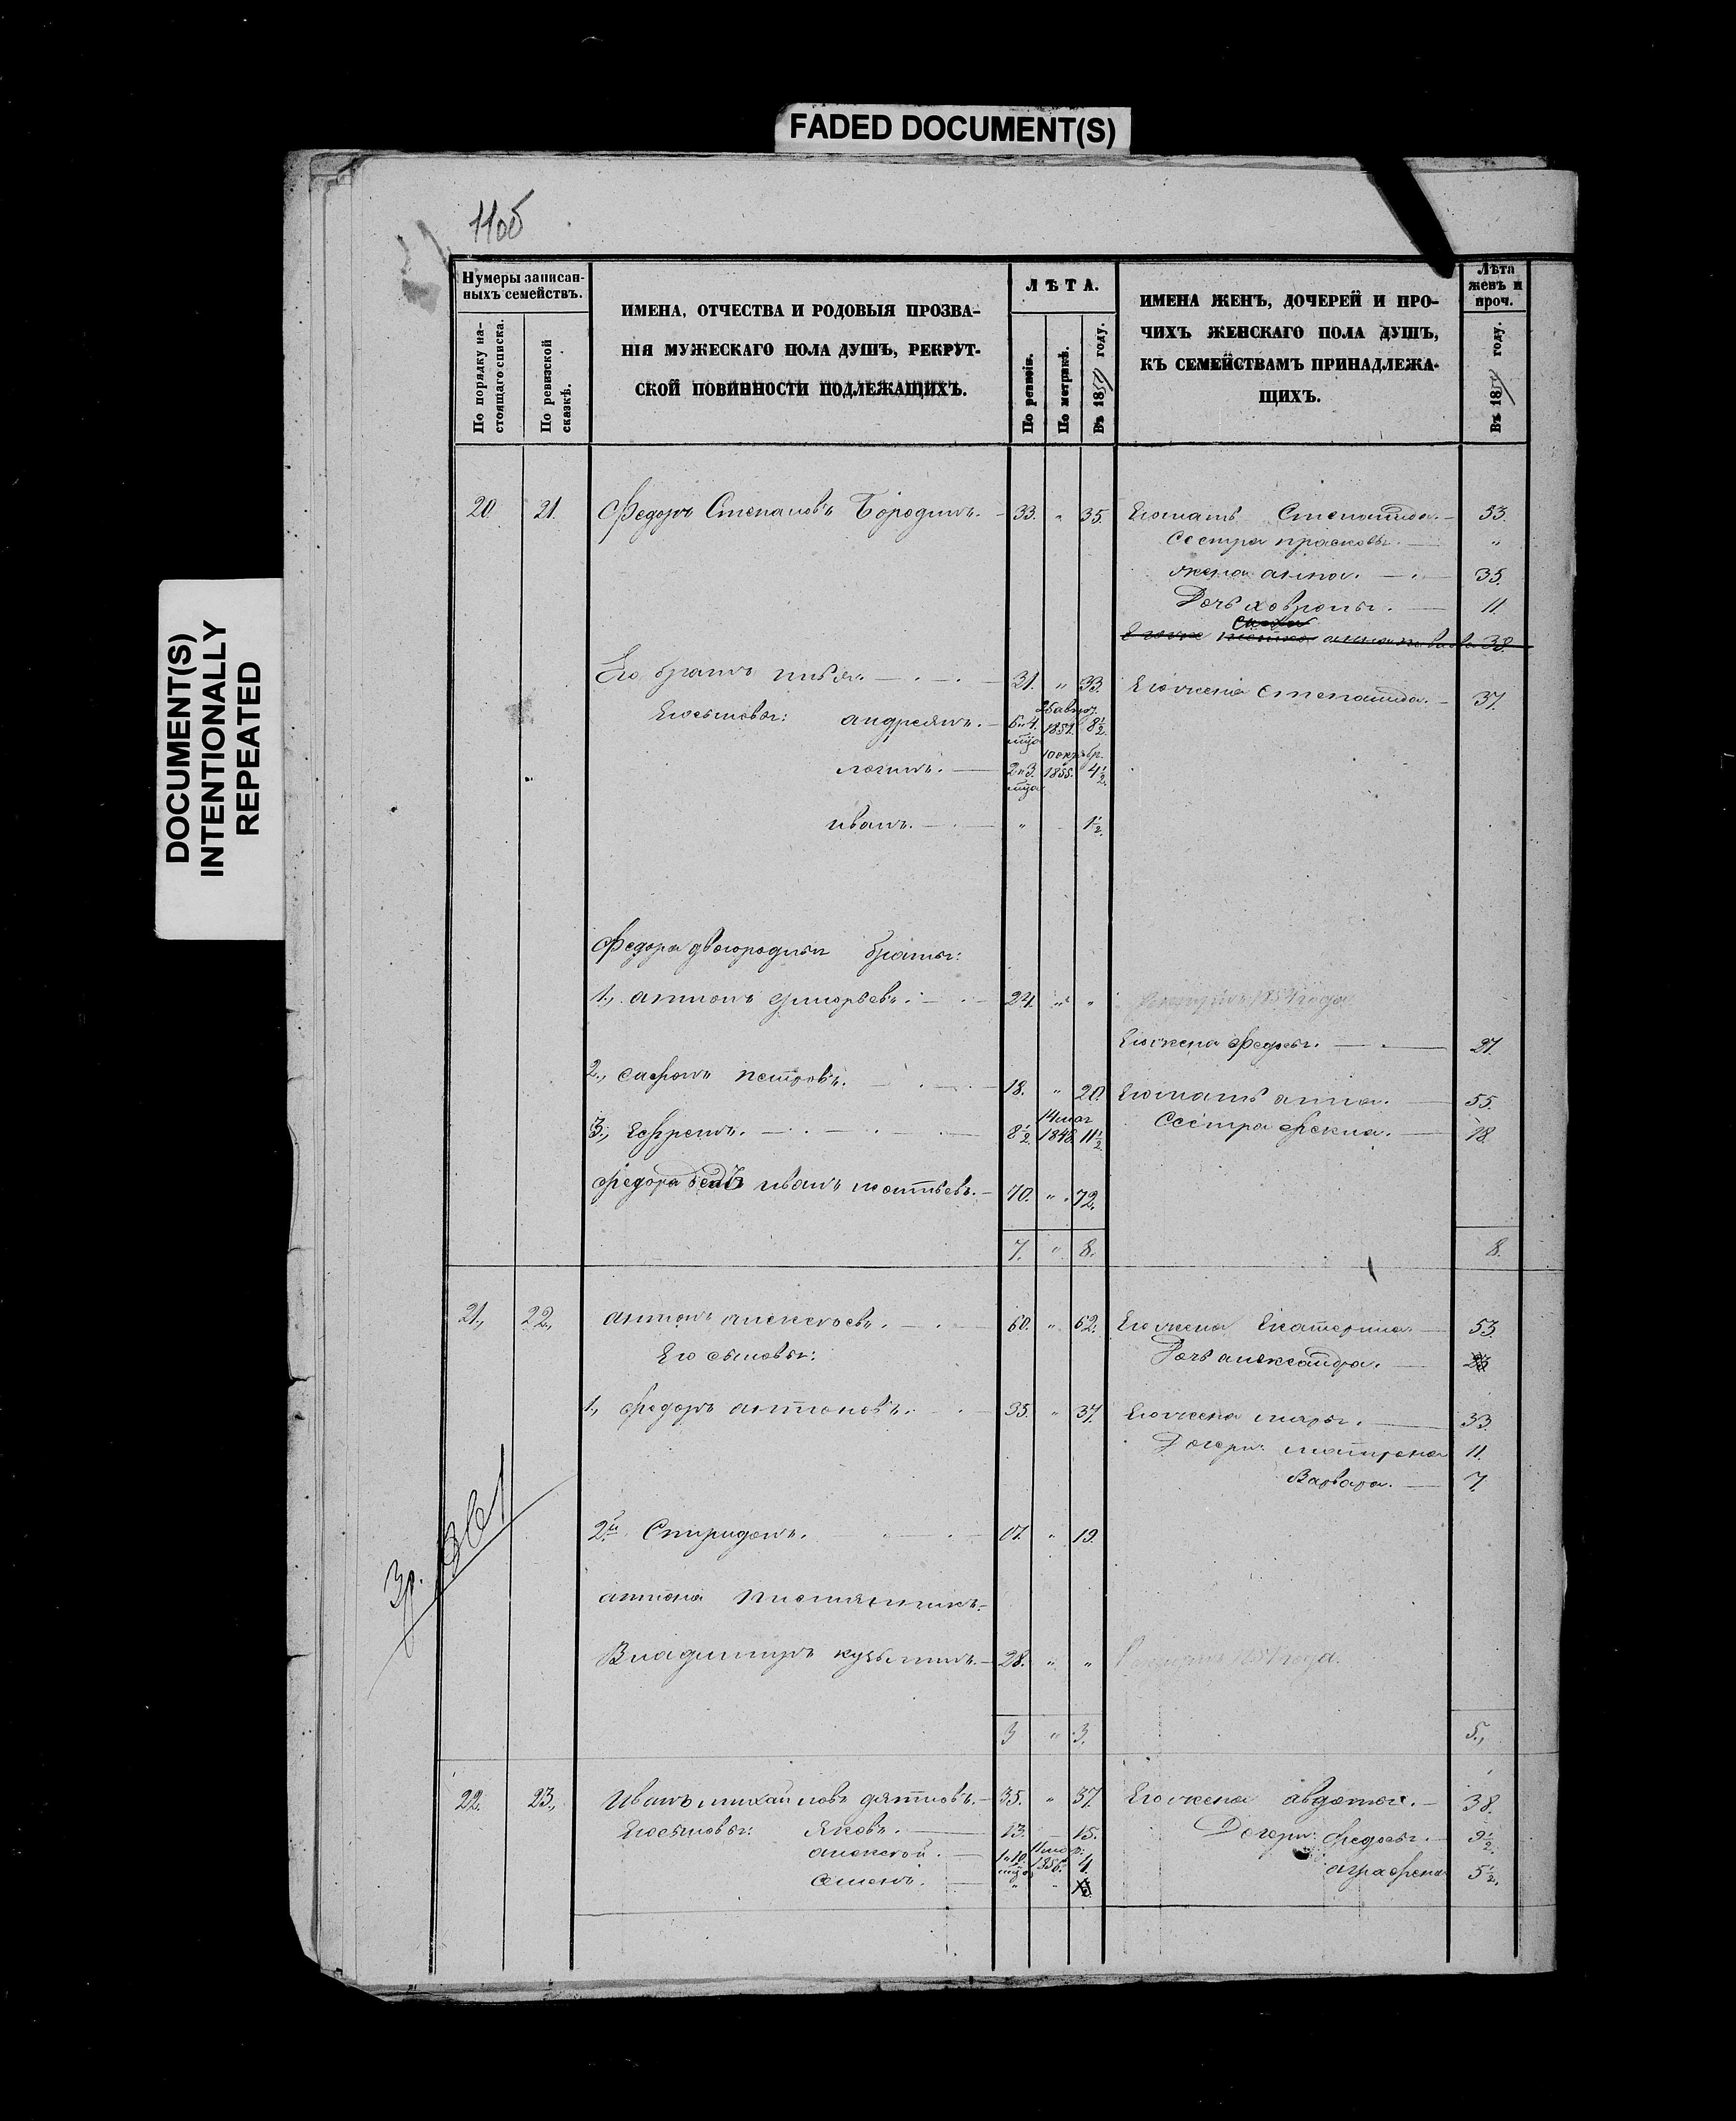 FADED DOCUMENT(S)
DOCUMENT(S)
INTENTIONALLY
REPEATED
1105
Нумеры записан-
ныхъ семействъ.
По порядку на-
стоящаго списка.
По ревизской
сказкѣ.
ИМЕНА, ОТЧЕСТВА И РОДОВЫЯ ПРОЗВА-
НІЯ МУЖЕСКАГО ПОЛА ДУШЪ, РЕКРУТ-
СКОЙ ПОВИННОСТИ ПОДЛЕЖАЩИХЪ.
ЛѢТА.
По ревизіи.
По метрикѣ.
Въ 18 году.
ИМЕНА ЖЕНЪ, ДОЧЕРЕЙ И ПРО-
ЧИХЪ ЖЕНСКАГО ПОЛА ДУШЪ,
КЪ СЕМЕЙСТВАМЪ ПРИНАДЛЕЖА-
ЩИХЪ.
Лѣта
женъ и
проч.
Въ 18 году.
20. 21. Федоръ Степановъ Бородинъ. 33. " 35. Его мать Степанида. 53.
Сестра прасковья. "
жена анна. 35.
Дочь ховронья. 11.
38.
Его братъ илья. 31. " 33. Его жена степанида. 37.
Его сыновья: андреянъ. 6 и 4. мца 1851. 8½.
логинъ. 2 и 3. мца 1855. 4½.
иванъ. " 1½.
Федора двоюродныи братья:
1., антонъ григорьевъ. 24. " " Рекрутъ 1854 года.
Его жена федосья. 27.
2., сафонъ петровъ. 18. " 20. Его мать анна. 55.
3., Ефремъ. 8½. 14 мая 1848. 11½. Сестра фекла. 18.
Федора дедъ иванъ 70. " 72.
7. " 8. 8.
21., 22., антонъ алексеевъ. 60. " 62. Его жена Екатерина. 53.
Его сыновья: Дочь александра.
1., федоръ антоновъ. 35. " 37. Его жена марья. 33.
Дочери: матрена 11.
Варвара. 7.
2й Спиридонъ. 17. " 19.
антона племянникъ.
Владимиръ кузьминъ. 28. " " Рекрутъ 1854 года.
3 " 3. 5.,
Зр. 361
22. 23., Иванъ михайловъ 35. " 37. Его жена авдотья. 38.
Его сыновья: Яковъ. 13. 15. Дочери: федосья. 9½.
алексей. 1 и 10. мца 1856. 4. аграфена 5½.
Семенъ. "